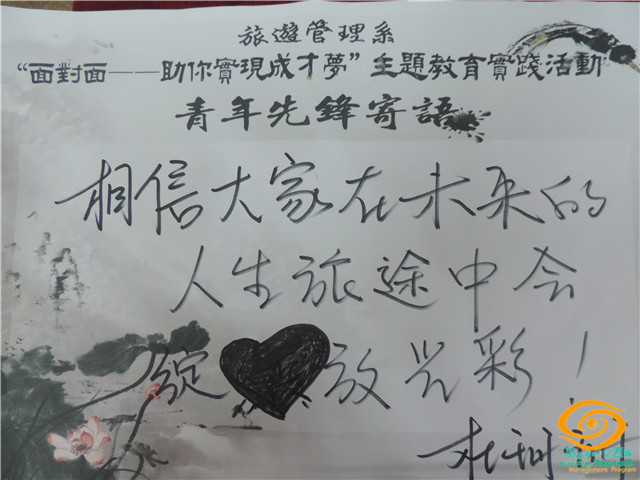 旅遊管理系
“面對面——助你實現成才夢”主題教育實踐活動
青年先鋒寄語
相信大家在未来的
人生旅途中会
绽放光彩！
Management Program